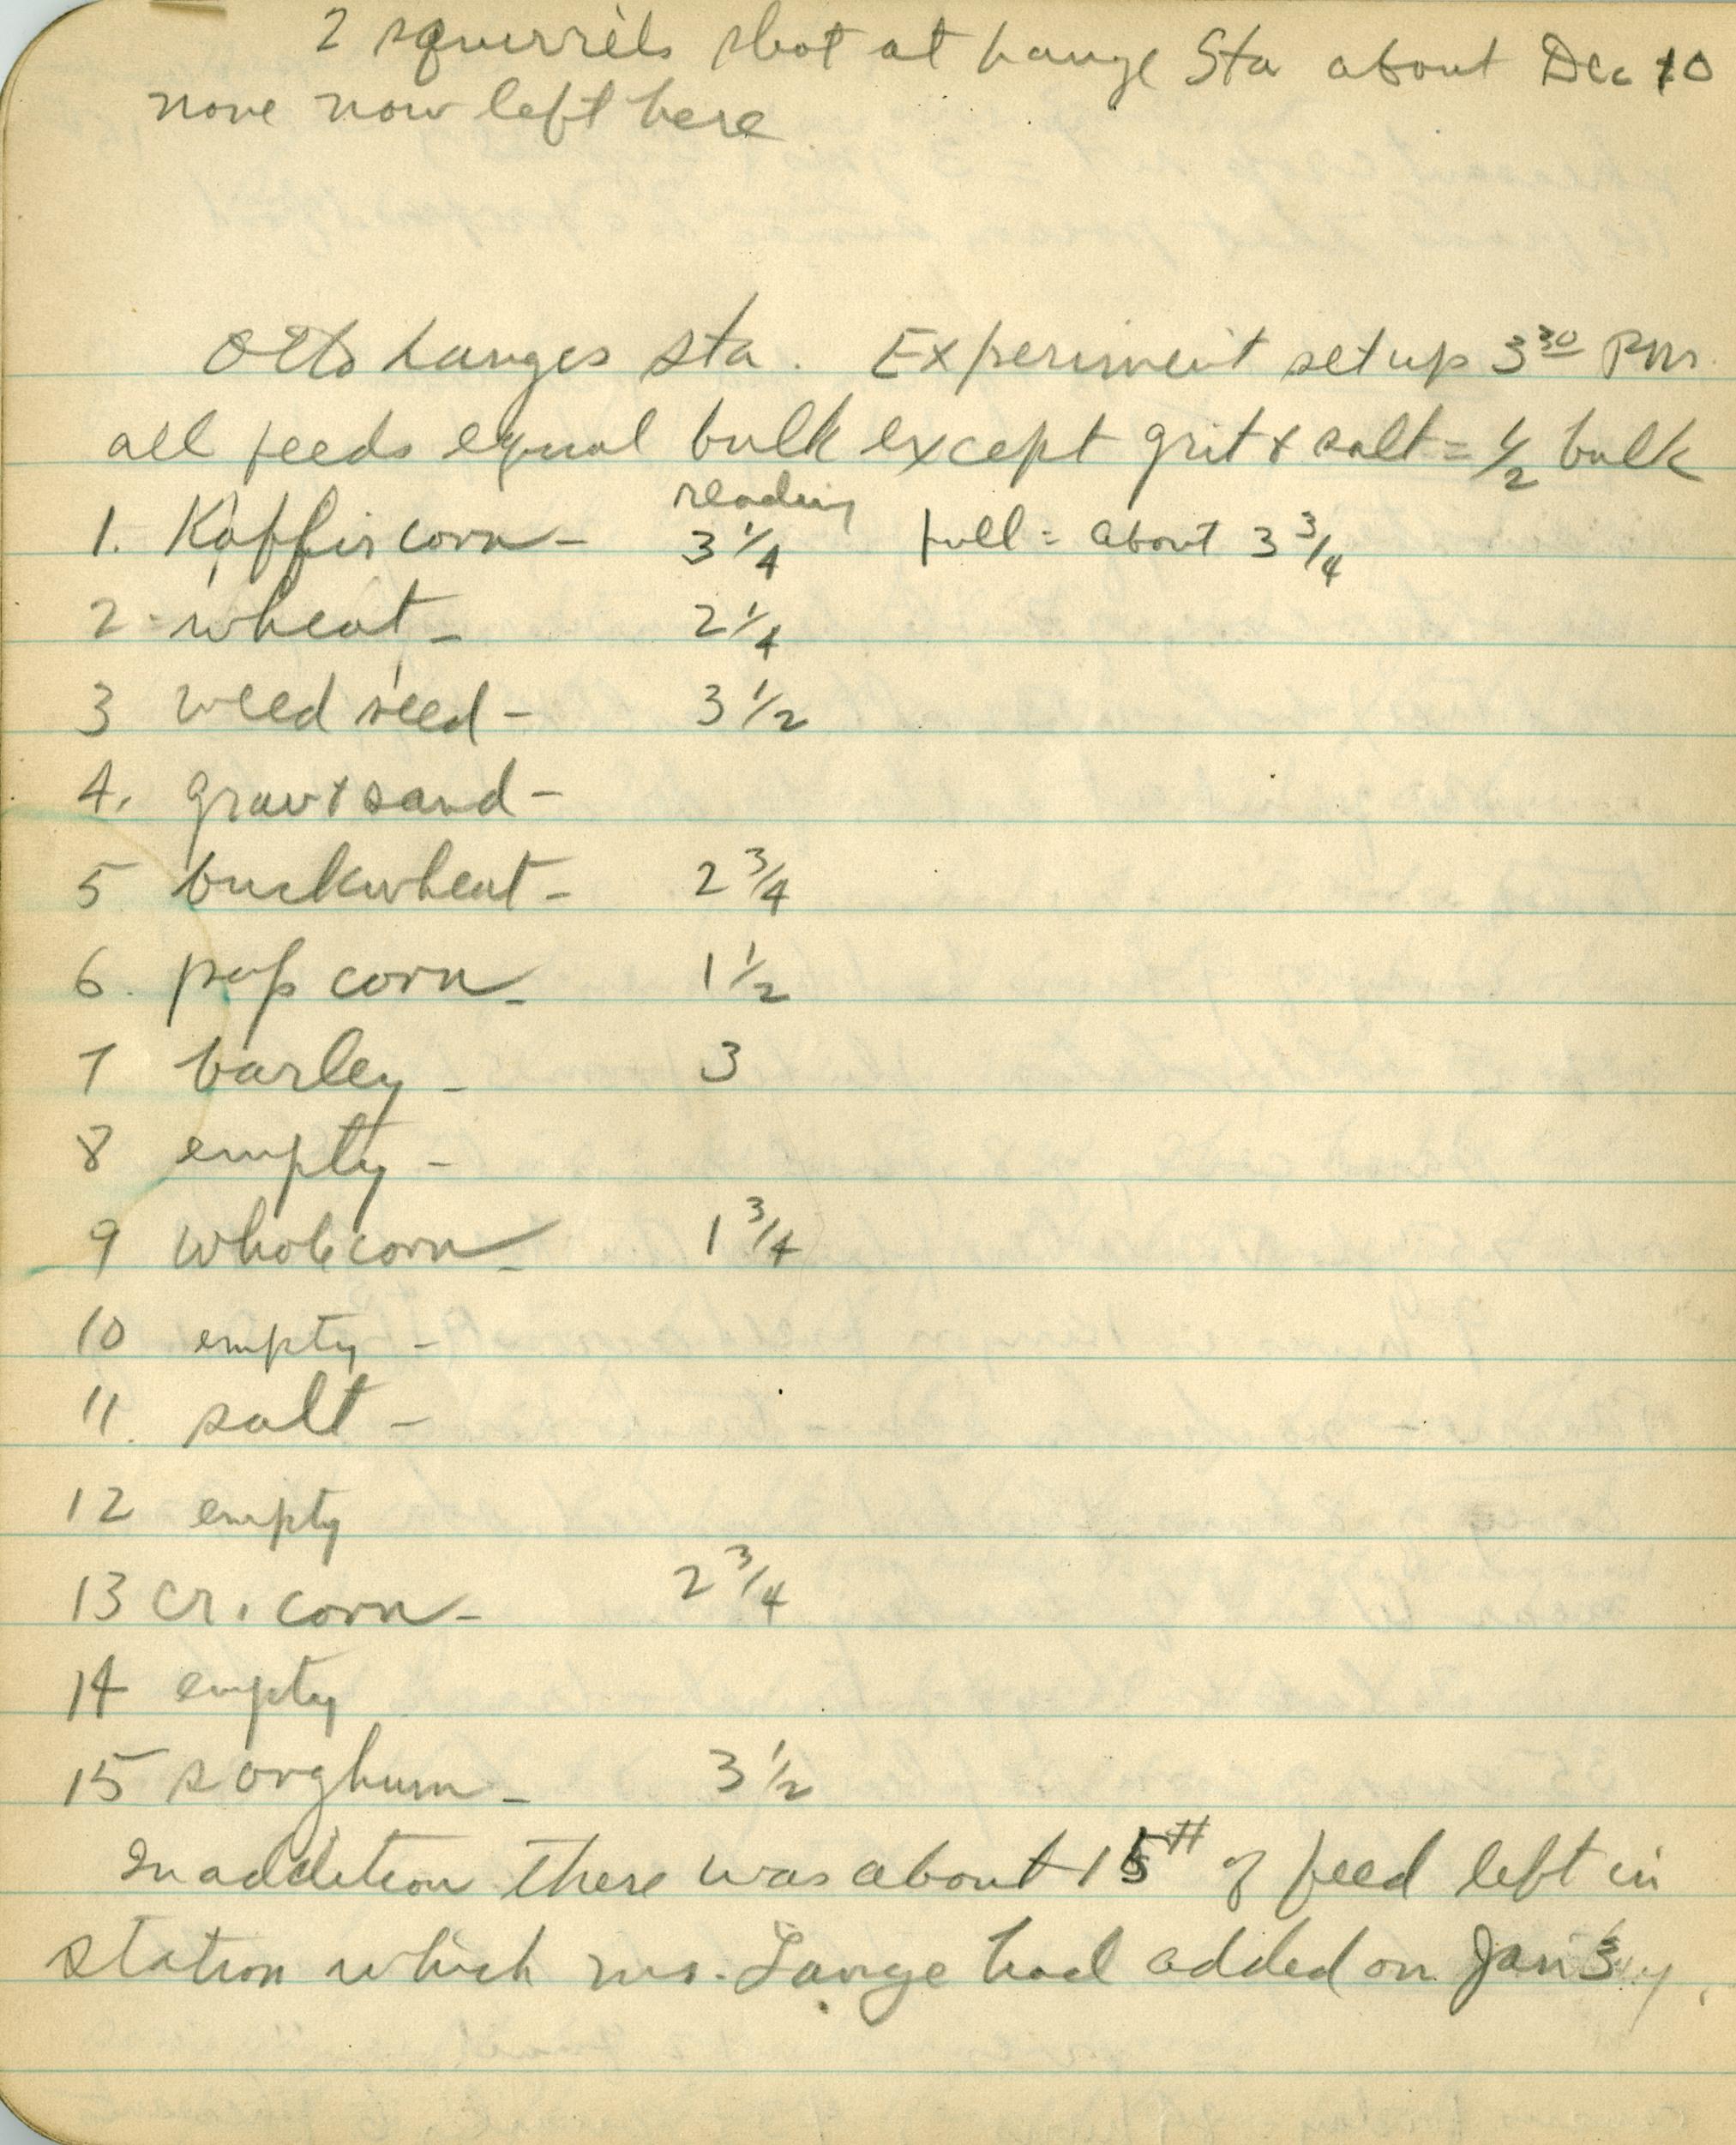 2 squirrels shot at Lange Sta about Dec 10
none now left here
Otto Langes sta. Experiment set up 3 30 PM.
all feeds equal bulk except grit & salt = 1/2 bulk
reading
1. Kaffir corn - 3 1/4 full = about 3 3/4
2 - wheat - 2 1/4
3 weed seed - 3 1/2
4. grav & sand -
5 buckwheat - 2 3/4
6. pop corn - 1 1/2
7 barley - 3
8 empty -
9 whole corn - 1 3/4
10 empty -
11. salt -
12 empty
13 cr. corn - 2 3/4
14 empty
15 sorghum - 3 1/2
In addition there was about 15# of feed left in
station which Mr. Lange had added on Jan 3